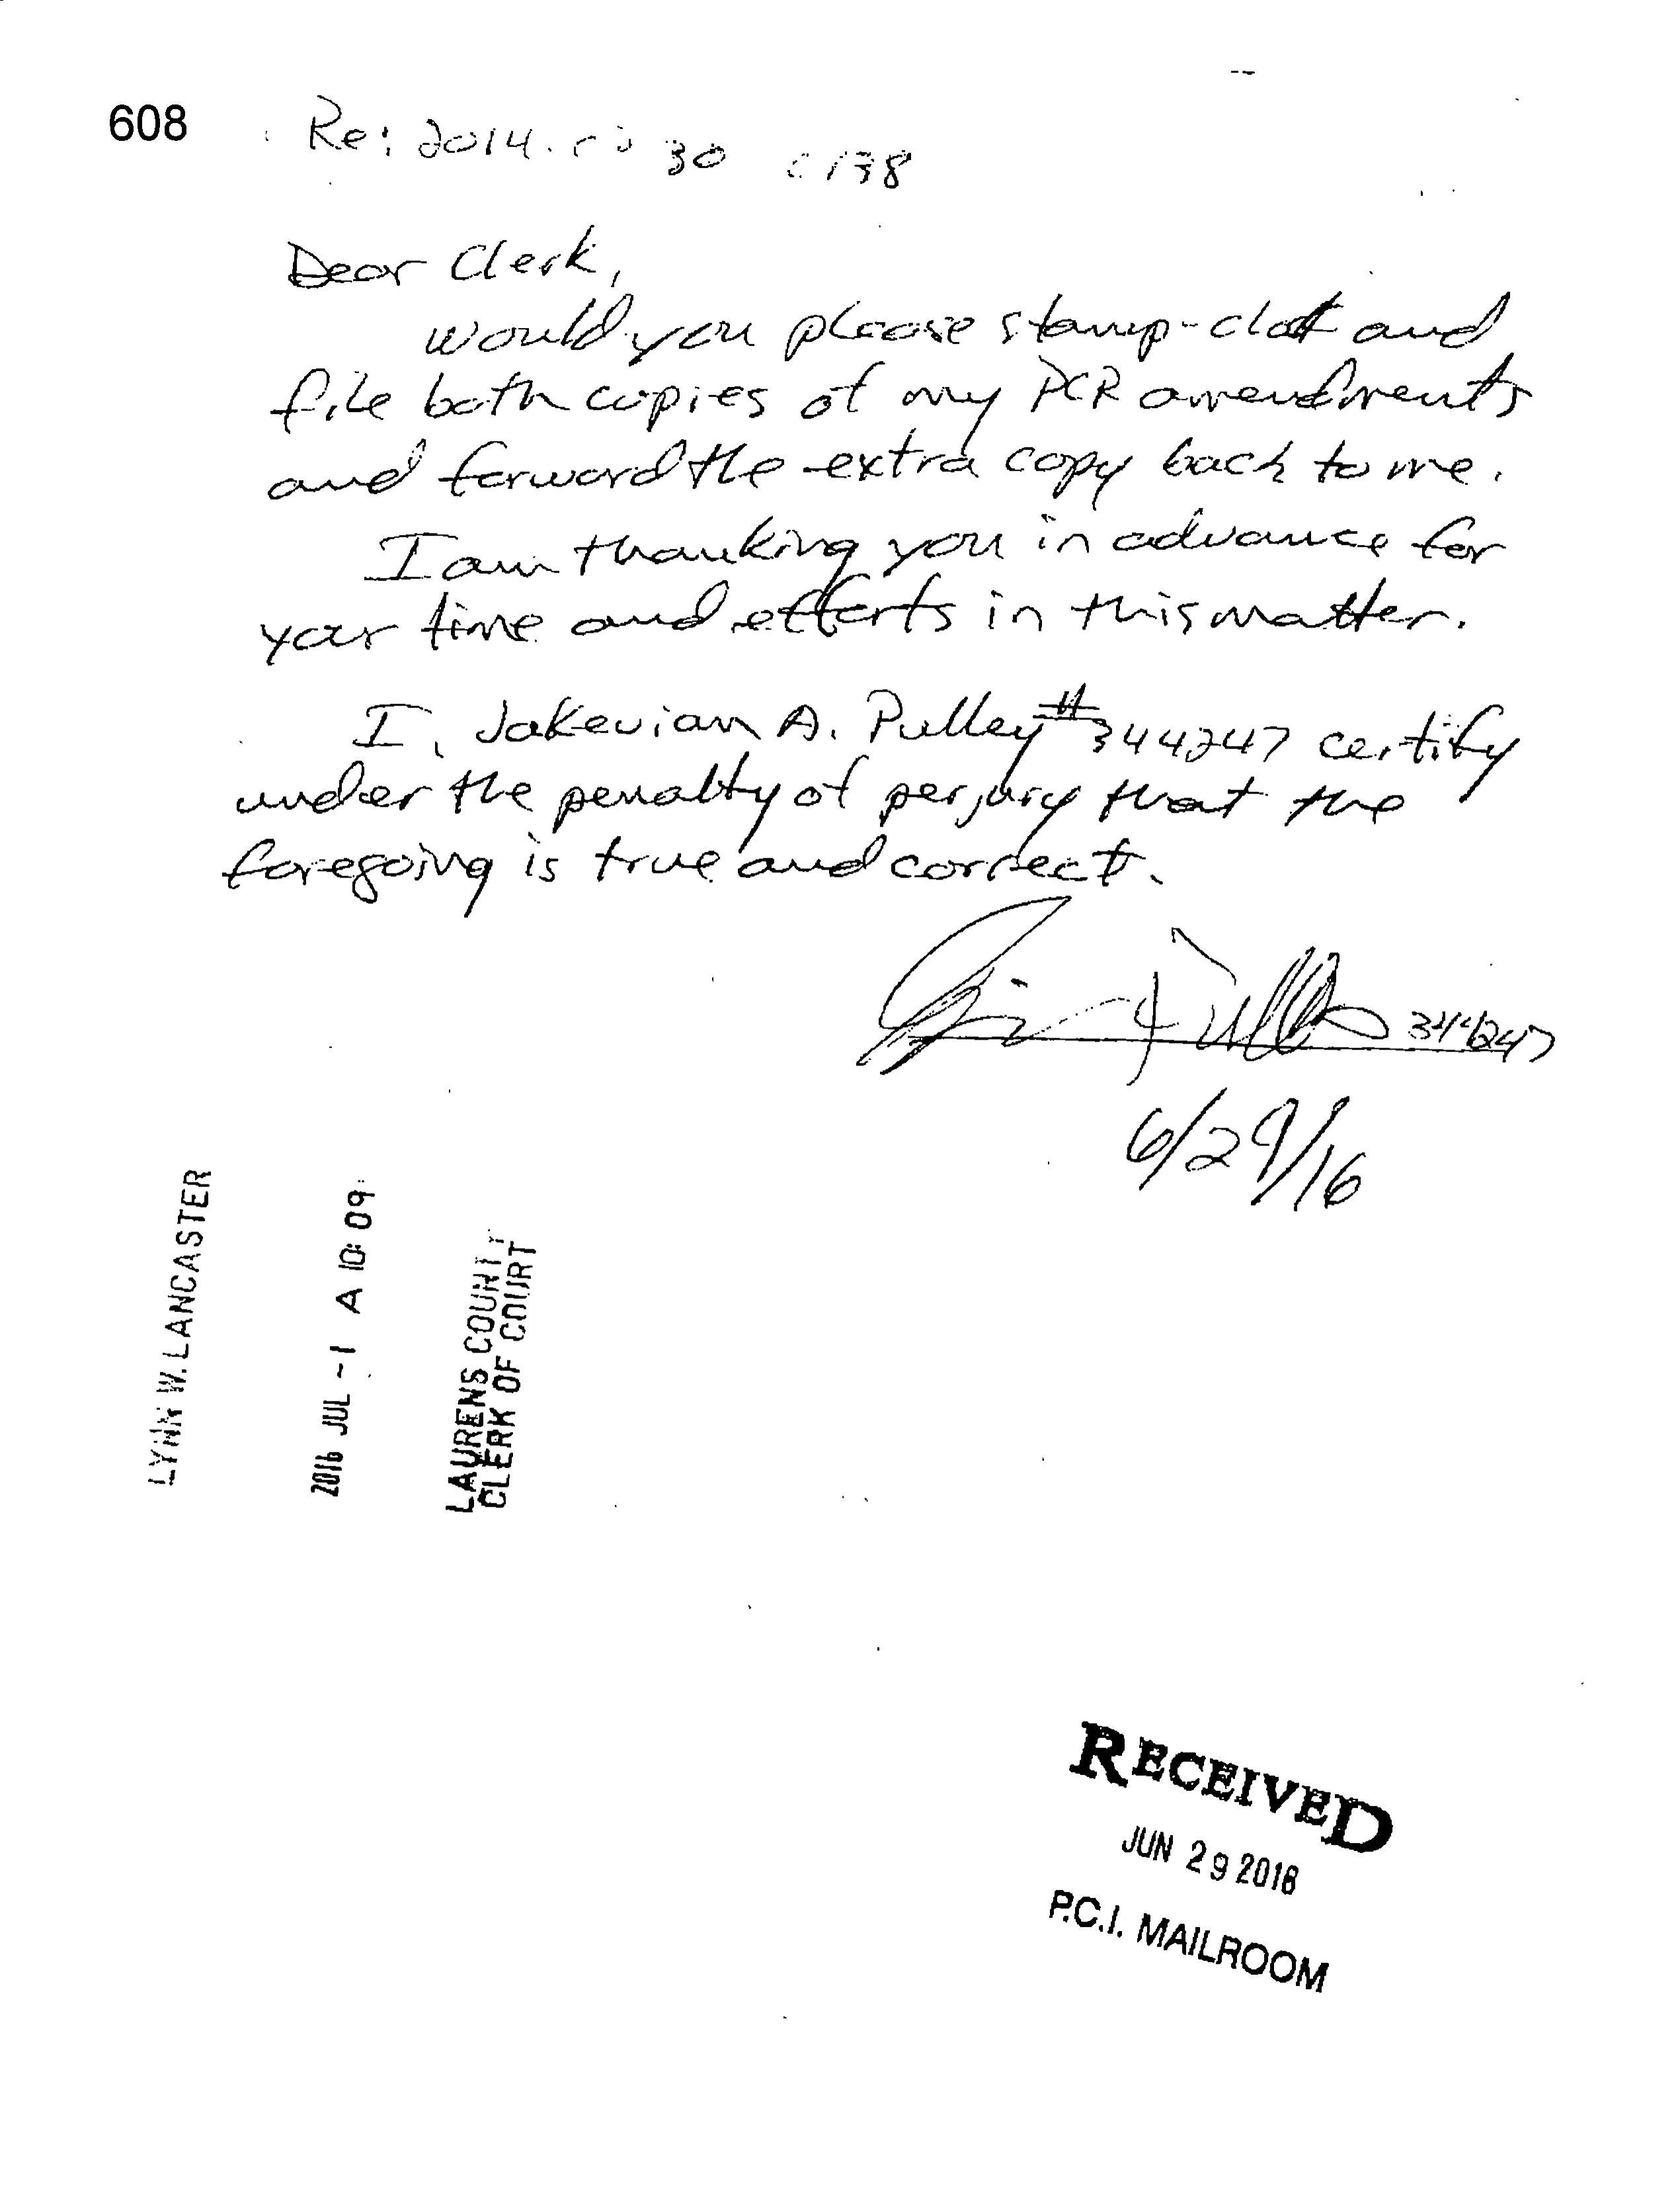 608
Re: 2014. 30 138
Dear Clerk,
would you please stamp-clok and
file both copies of my PCR amendments
and forward the extra copy back to me.
I am thanking you in advance for
your time and efforts in this matter.
I, Jakevian A. Pulley #344247 certify
under the penalty of perjury that the
foregoing is true and correct.
344247
6/29/16
LYNN W. LANCASTER
2016 JUL -1 A 10:09
LAURENS COUNTY
CLERK OF COURT
RECEIVED
JUN 29 2016
P.C.I. MAILROOM